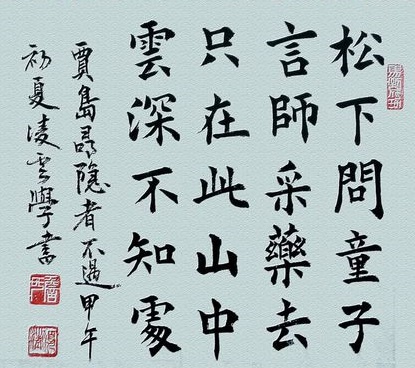 松下問童子
言師采藥去
只在此山中
雲深不知處
賈島尋隱者不遇甲午
初夏凌云學書